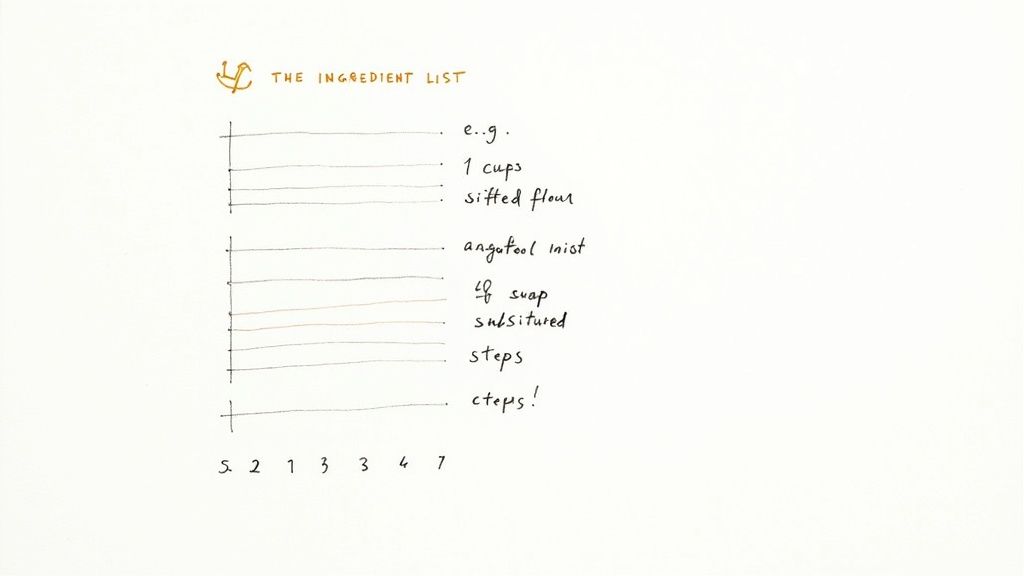 THE INGREDIENT LIST
e..g.
1 cups
sifted flour
swap
subsitured
steps
cteps!
5. 2 1 3 3 4 7